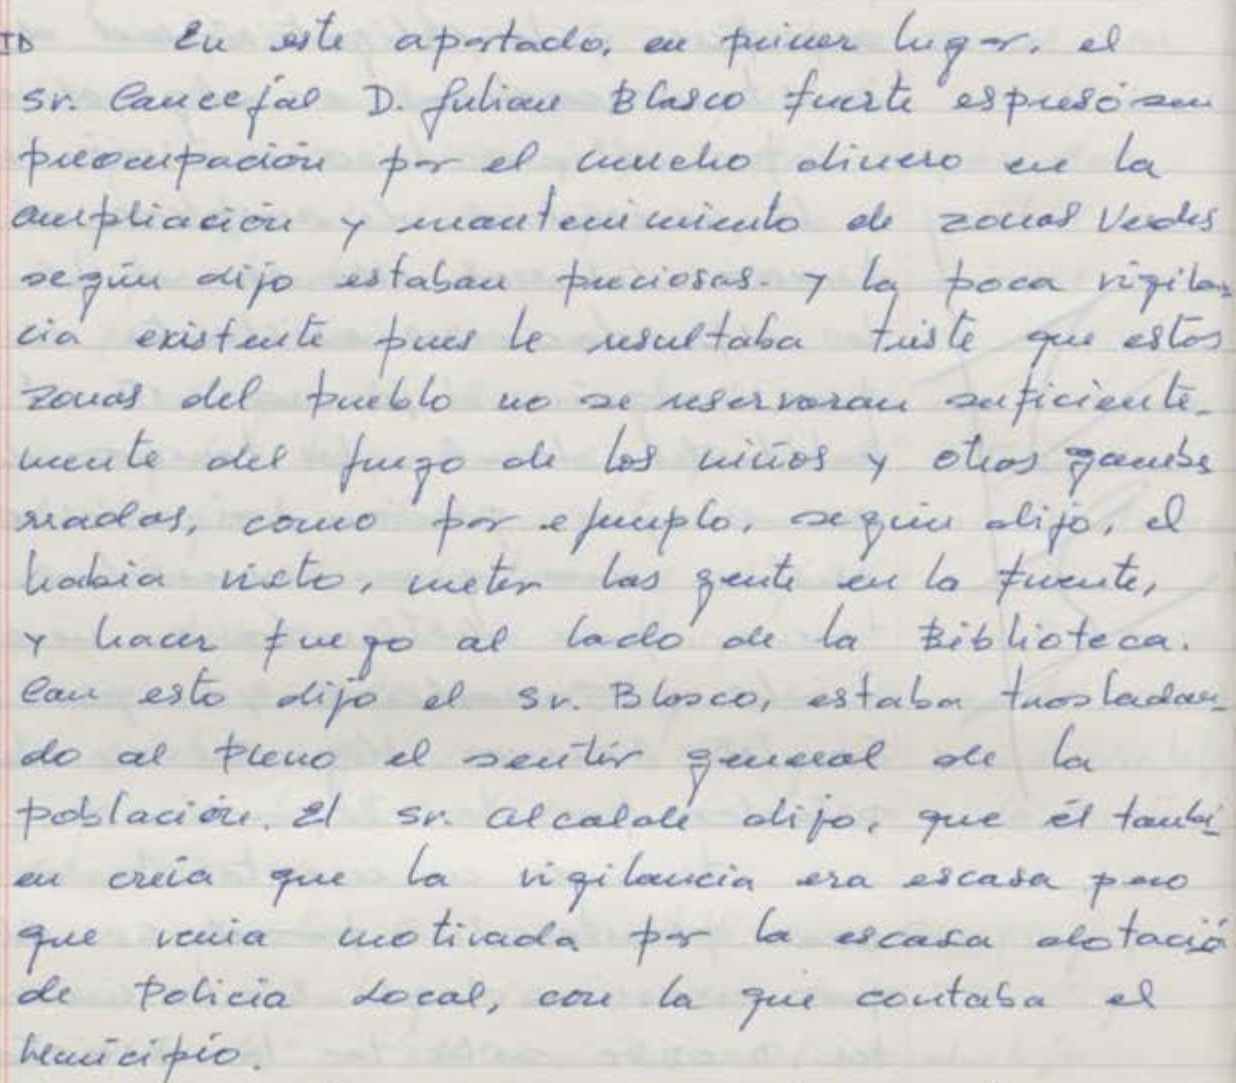 ID En este apartado, en primer lugar, el
Sr. Concejal D. Julian Blasco Fuerte espresó su
preocupación por el mucho dinero en la
ampliación y mantenimiento de zonas Verdes
según dijo estaban preciosas. y la poca vigilan
cia existente pues le resultaba triste que estos
zonas del pueblo no se reservaran suficiente-
mente del juego de los niños y otras gambe
rradas, como por ejemplo, según dijo, el
habia visto, meter las gente en la fuente,
y hacer fuego al lado de la Biblioteca.
Con esto dijo el Sr. Blasco, estaba trasladan-
do al Pleno el sentir general de la
población. El Sr. Alcalde dijo, que él tambi-
en creía que la vigilancia era escasa pero
que venia motivada por la escasa dotació
de Policia Local, con la que contaba el
Municipio.